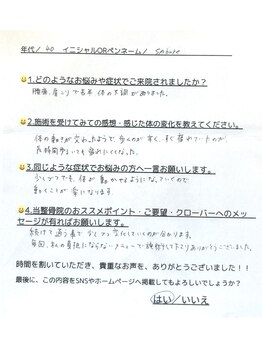 年代／ 40 イニシャルORペンネーム／
1.どのようなお悩みや症状でご来院されましたか？
2.施術を受けてみての感想・感じた体の変化を教えてください。
体の動きが変わったようで、歩くのが
長時間歩いても疲れにくくなった。
3.同じような症状でお悩みの方へ一言お願いします。
少しずつでも、体が動かせるようになっていくので
動くことが楽になります
4.当整骨院のおススメポイント・ご要望・クローバーへのメッ
セージが有ればお願いします。
続けて通う事で少しずつ変化していくのが分かります。
毎回、私の負担にならないメニューで施術して下さりありがとうございました。
時間を割いていただき、貴重なお声を、ありがとうございました！！
最後に、この内容をSNSやホームページへ掲載してもよろしいでしょうか？
はい／いいえ